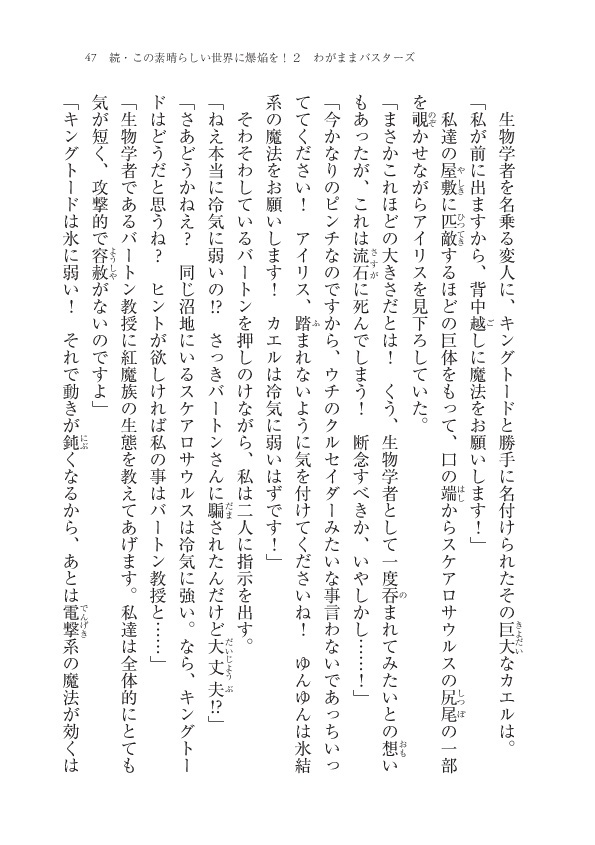 47　続・この素晴らしい世界に爆焔を！２　わがままバスターズ
　生物学者を名乗る変人に、キングトードと勝手に名付けられたその巨大なカエルは。
「私が前に出ますから、背中越しに魔法をお願いします！」
　私達の屋敷に匹敵するほどの巨体をもって、口の端からスケアロサウルスの尻尾の一部
を覗かせながらアイリスを見下ろしていた。
「まさかこれほどの大きさだとは！　くう、生物学者として一度呑まれてみたいとの想い
もあったが、これは流石に死んでしまう！　断念すべきか、いやしかし……！」
「今かなりのピンチなのですから、ウチのクルセイダーみたいな事言わないであっちいっ
ててください！　アイリス、踏まれないように気を付けてくださいね！　ゆんゆんは氷結
系の魔法をお願いします！　カエルは冷気に弱いはずです！」
　そわそわしているバートンを押しのけながら、私は二人に指示を出す。
「ねえ本当に冷気に弱いの!?　さっきバートンさんに騙されたんだけど大丈夫!?」
「さあどうかねえ？　同じ沼地にいるスケアロサウルスは冷気に強い。なら、キングトー
ドはどうだと思うね？　ヒントが欲しければ私の事はバートン教授と……」
「生物学者であるバートン教授に紅魔族の生態を教えてあげます。私達は全体的にとても
気が短く、攻撃的で容赦がないのですよ」
「キングトードは氷に弱い！　それで動きが鈍くなるから、あとは電撃系の魔法が効くは